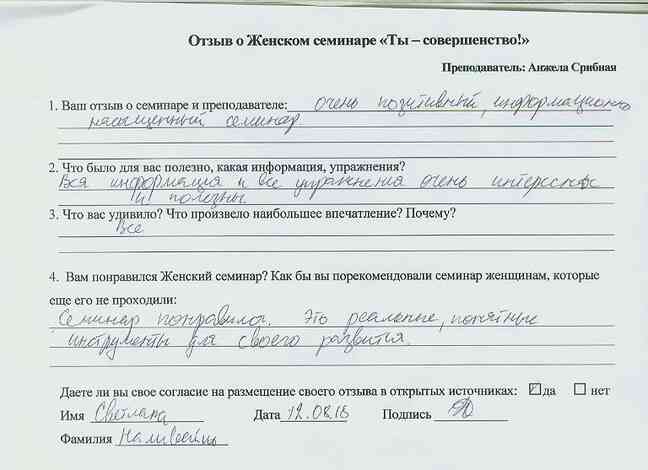 Отзыв о Женском семинаре «Ты – совершенство!»
Преподаватель: Анжела Срибная
1. Ваш отзыв о семинаре и преподавателе: очень позитивный, информационно
насыщенный семинар.
2. Что было для вас полезно, какая информация, упражнения?
Вся информация и все упражнения очень интересны
и полезны
3. Что вас удивило? Что произвело наибольшее впечатление? Почему?
Все
4. Вам понравился Женский семинар? Как бы вы порекомендовали семинар женщинам, которые
еще его не проходили:
Семинар понравился. Это реальные, понятные
инструменты для своего развития.
Даете ли вы свое согласие на размещение своего отзыва в открытых источниках: да нет
Имя Светлана Дата 12.08.18 Подпись
Фамилия